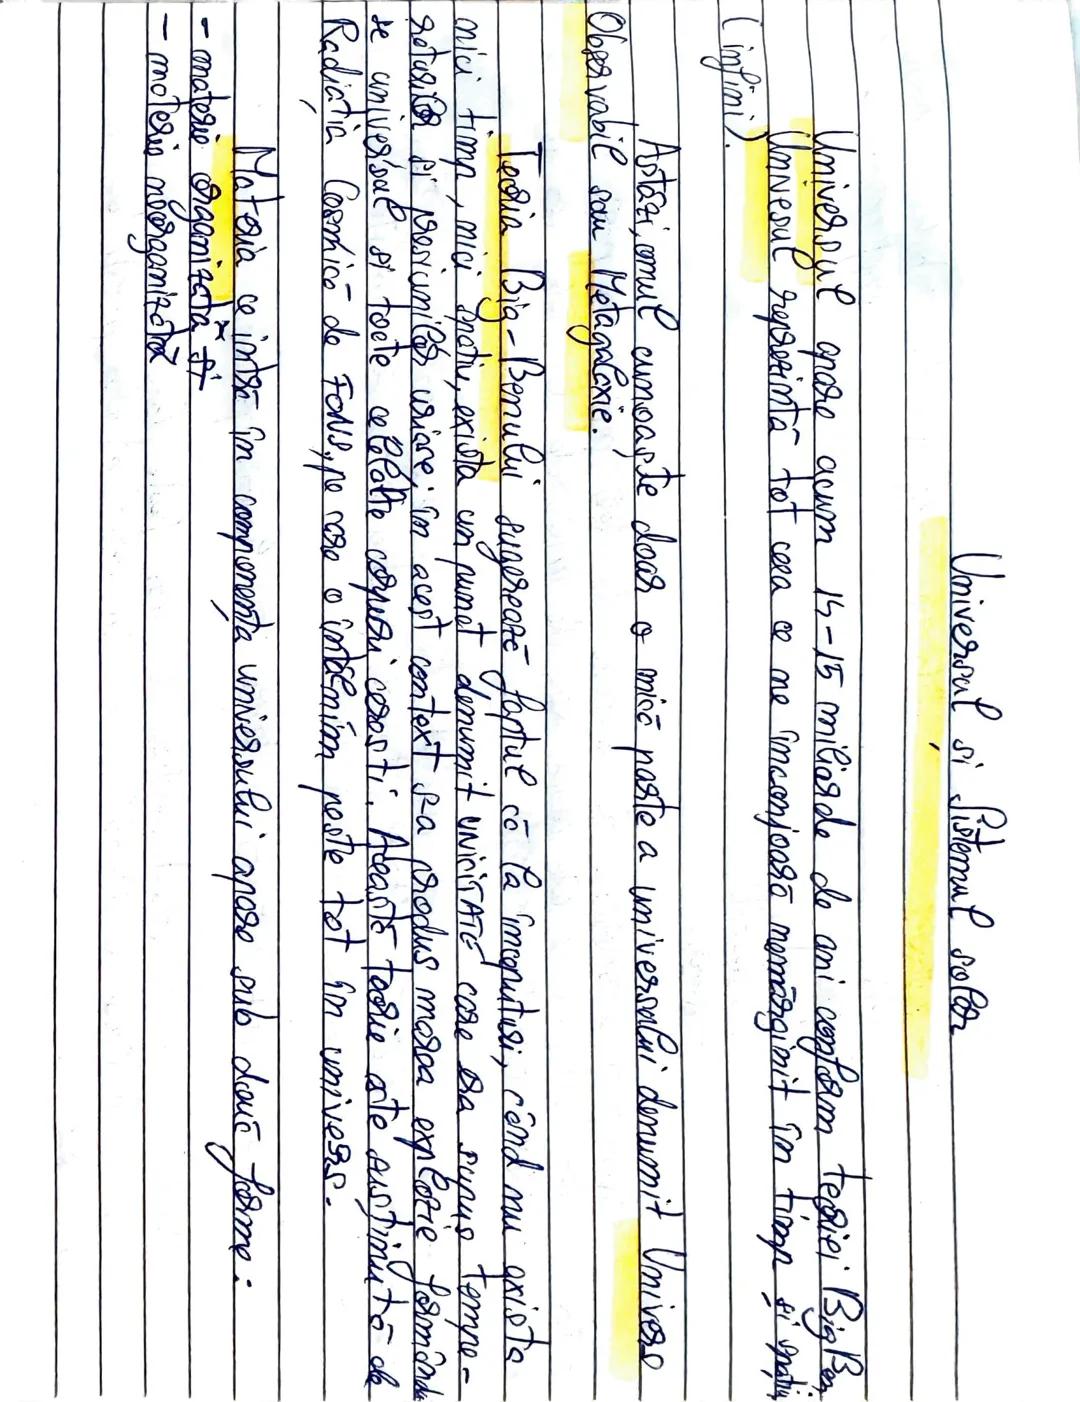 Universul si Sistemul solar
Universul apare acum 14-15 miliarde de ani conform teoriei Big Ben,
Universul reprezintă tot ceea ce ne înconjoară nemărginit în timp și spațiu
(infini).
Astăzi, omul cunoaște doar o mică parte a universului denumit Univers
Observabil sau Metagalaxie.
Teoria Big-Benului sugerează faptul că la începuturi, când nu exista
nici timp, nici spațiu, exista un punct denumit UNICITATE care era supus tempe-
raturilor și presiunilor uriașe; în acest context s-a produs marea explozie formându
se universul și toate celelalte corpuri cerești. Această teorie este susținută de
Radiația Cosmică de FONS, pe care o întâlnim peste tot în univers.
Materia ce intră în componența universului apare sub două forme:
- materie organizată și
- materie neorganizată